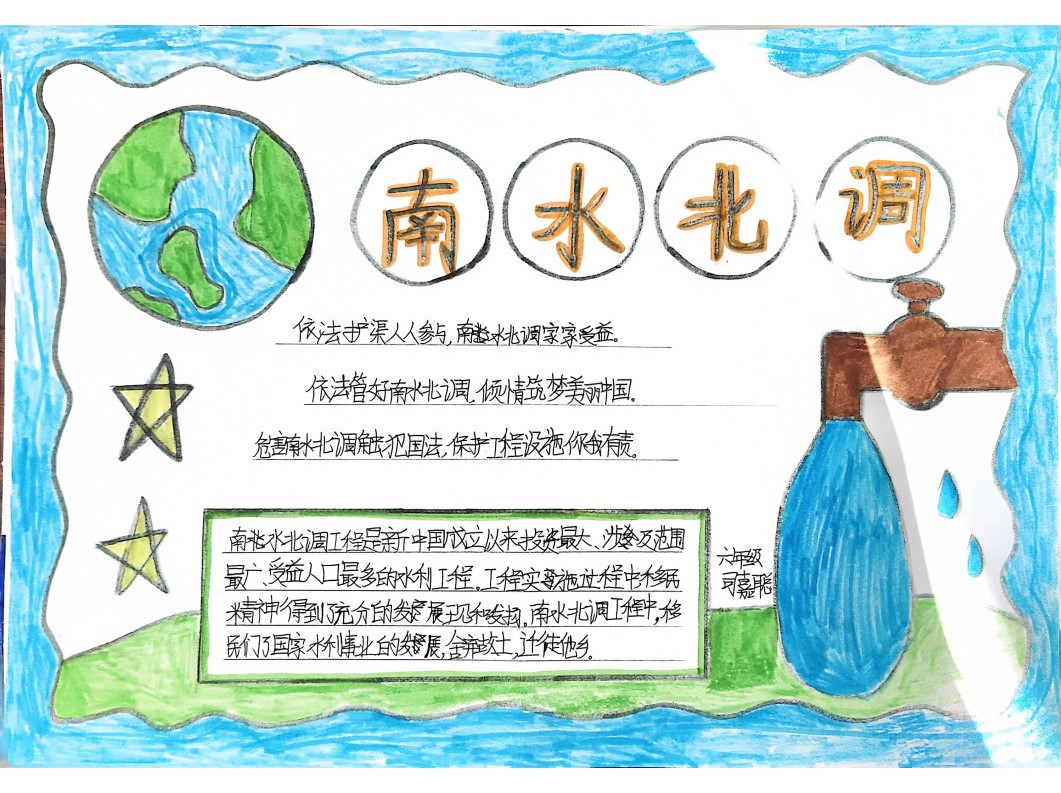 南水北调
依法护渠人人参与,南水北调家家受益。
依法管好南水北调,倾情筑梦美丽中国。
危害南水北调触犯国法,保护工程设施你我有责。
南水北调工程是新中国成立以来投资最大、涉及范围
最广、受益人口最多的水利工程。工程实施过程中移民
精神得到了充分的发展和发扬。南水北调工程中,移
民们了国家水利事业的发展,舍弃故土,迁徙他乡。
六年级
司嘉聪